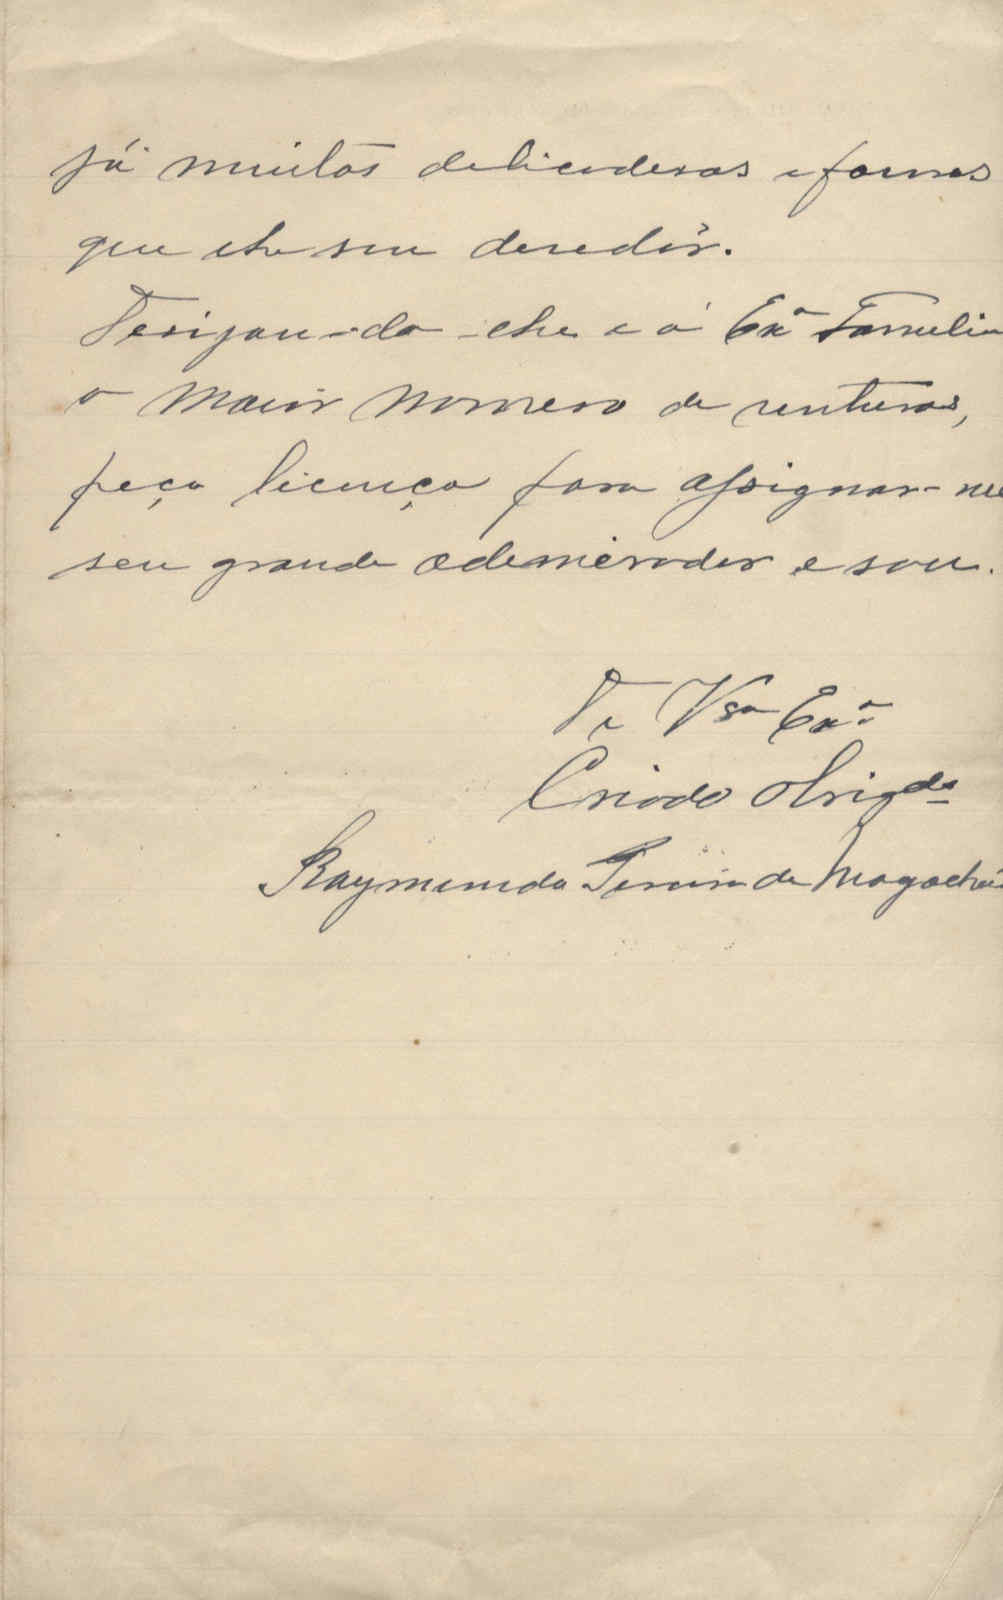 já muitas delicadesas e favores
que lhe sou devedôr.
Desijan-do-lhe e á Exª Familia
o maior nomero de venturas,
peço licença para assignar-me
seu grande ademirador e sou.
De Vsa Exª
Criado Obrigdo
Raymundo Pereira de Magalhães